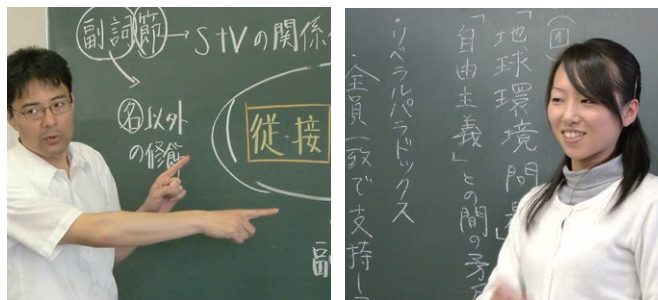 副詞節→S+Vの関係
名以外
の修飾
従・接
副
「地球環境問題」
「自由主義」との間の矛盾
・リベラルパラドックス
・全員一致で支持し